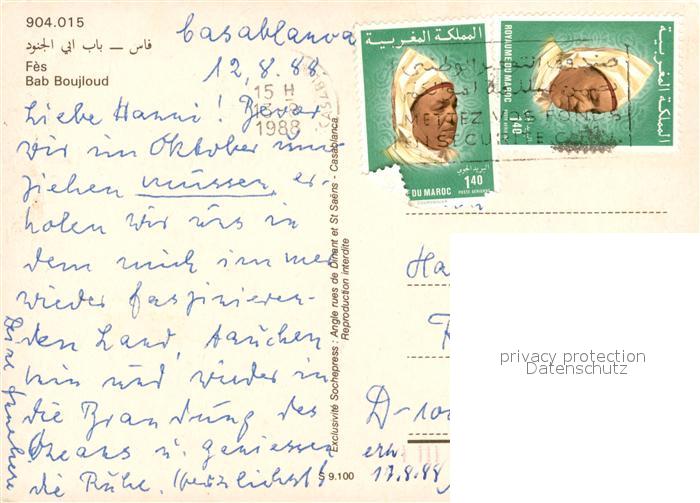 904.015
فاس — باب ابي الجنود
Fès
Bab Boujloud
Casablanca
12.8.88
15 H
1988
Liebe Hanni! Bevor
wir im Oktober um-
ziehen müssen, er-
holen wir uns in
dem mich immer
wieder faszinieren-
den Land, tauchen
hin und wieder in
die Brandung des
Ozeans u. geniessen
die Ruhe. Herzlichst!
Deine
Exclusivité Sochepress : Angle rues de Dinant et St Saëns - Casablanca
Reproduction interdite
S 9.100
المملكة المغربية
البريد الجوي
DU MAROC
1.40
POSTE AERIENNE
المملكة المغربية
ROYAUME DU MAROC
1.40
METTEZ VOS FONDS
EN SECURITE
Ha
D-
erh.
17.8.88
privacy protection
Datenschutz